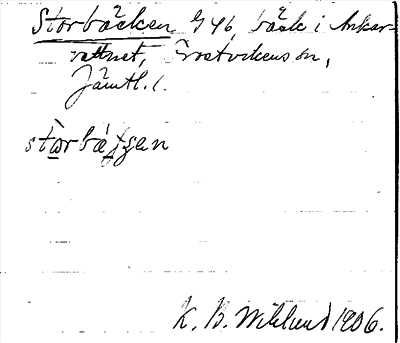 Storbäcken G 46, bäck i Ankar-
vattnet, Frostvikens sn,
Jämtl. l.
stòrbäʒʒen
K. B. Wiklund 1906.